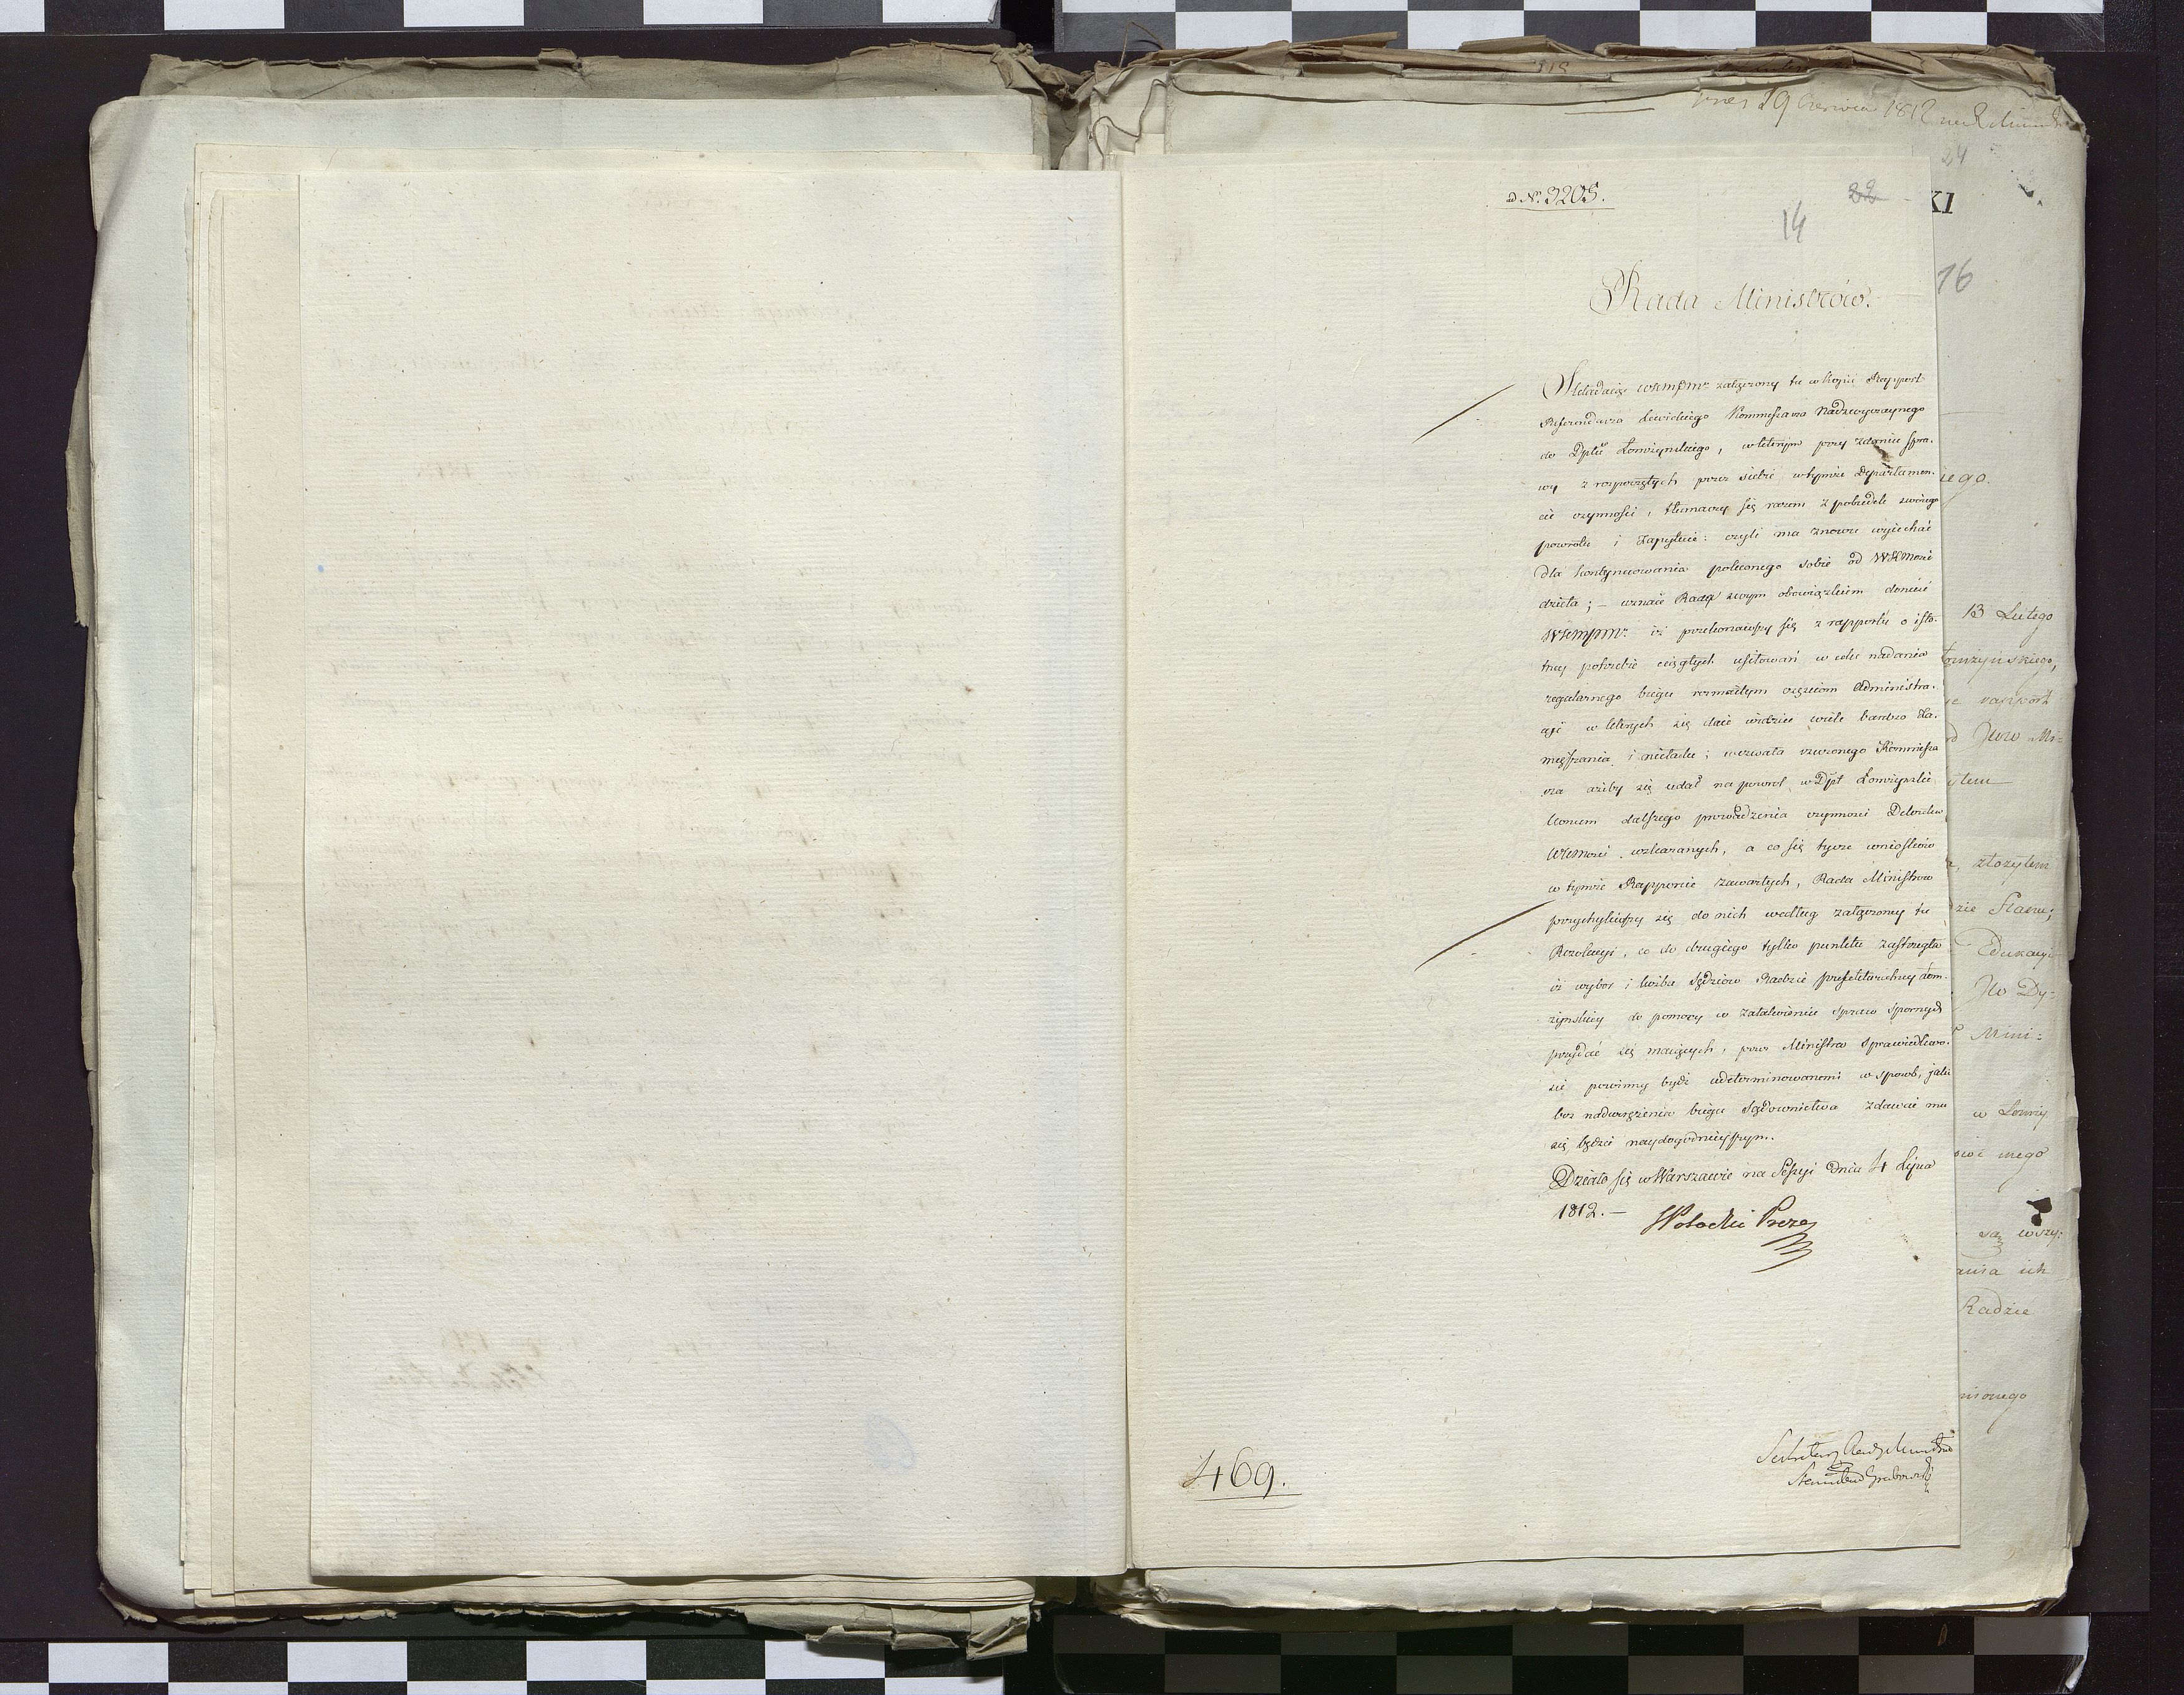 dnia 29 Czerwca 1812
24
ad N. 3205.
22
14
KI
16
Rada Ministrów.
Składaiąc WKMPMu załączony tu w kopii Rapport
Referendarza Lewickiego Kommissarza Nadzwyczaynego
do Dpttu Łomżyńskiego, w którym przy zdaniu spra-
wy z rozpoczętych przez siebie w tymże Departamen-
cie czynności, tłumaczy się razem z pobudek swoiego
powrotu i Zapytuie: czyli ma znowu wyiechać
dla kontynuowania poleconego sobie od WKMości
dzieła; – uznaie Rada swym obowiązkiem donieść
WKMPMu iż przekonawszy się z rapportu o isto-
tney potrzebie ciągłych usiłowań w celu nadania
regularnego biegu rozmaitym częściom Administra-
cyi w których się daie widzieć wiele bardzo Za-
mięszania i nieładu; wezwała rzeczonego Kommissa
rza ażeby się udał na powrot w Dpt Łomżyński
koncem dalszego prowadzenia czynności Dekretem
WKMości wskazanych, a co się tycze wniosków
w tymże Rapporcie zawartych, Rada Ministrow
przychyliwszy się do nich według załączoney tu
Rezolucyi, co do drugiego tylko punktu zastrzegła
iż wybor i liczba Sędziow Radzie prefekturalney Łom-
żyńskiey do pomocy w załatwieniu spraw spornych
przydać się maiących, przez Ministra Sprawiedliwo-
ści powinny bydź udeterminowanemi w sposob, jaki
bez nadwerężenia biegu Sądownictwa zdawać mu
się będzie naydogodnieyszym.
Działo się w Warszawie na Sessyi dnia 4 Lipca
1812. –
SPotocki Prezes
Sekretarz Rady Ministrów
Stanisław Grabowski
469.
iego.
13 Lutego
omżyńskiego,
rapport
JWW Mi-
złożyłem
dzie Stanu;
Edukacyi
JWo Dy-
Mini-
w Łomży
mego
są wszy-
ania ich
Radzie
nionego